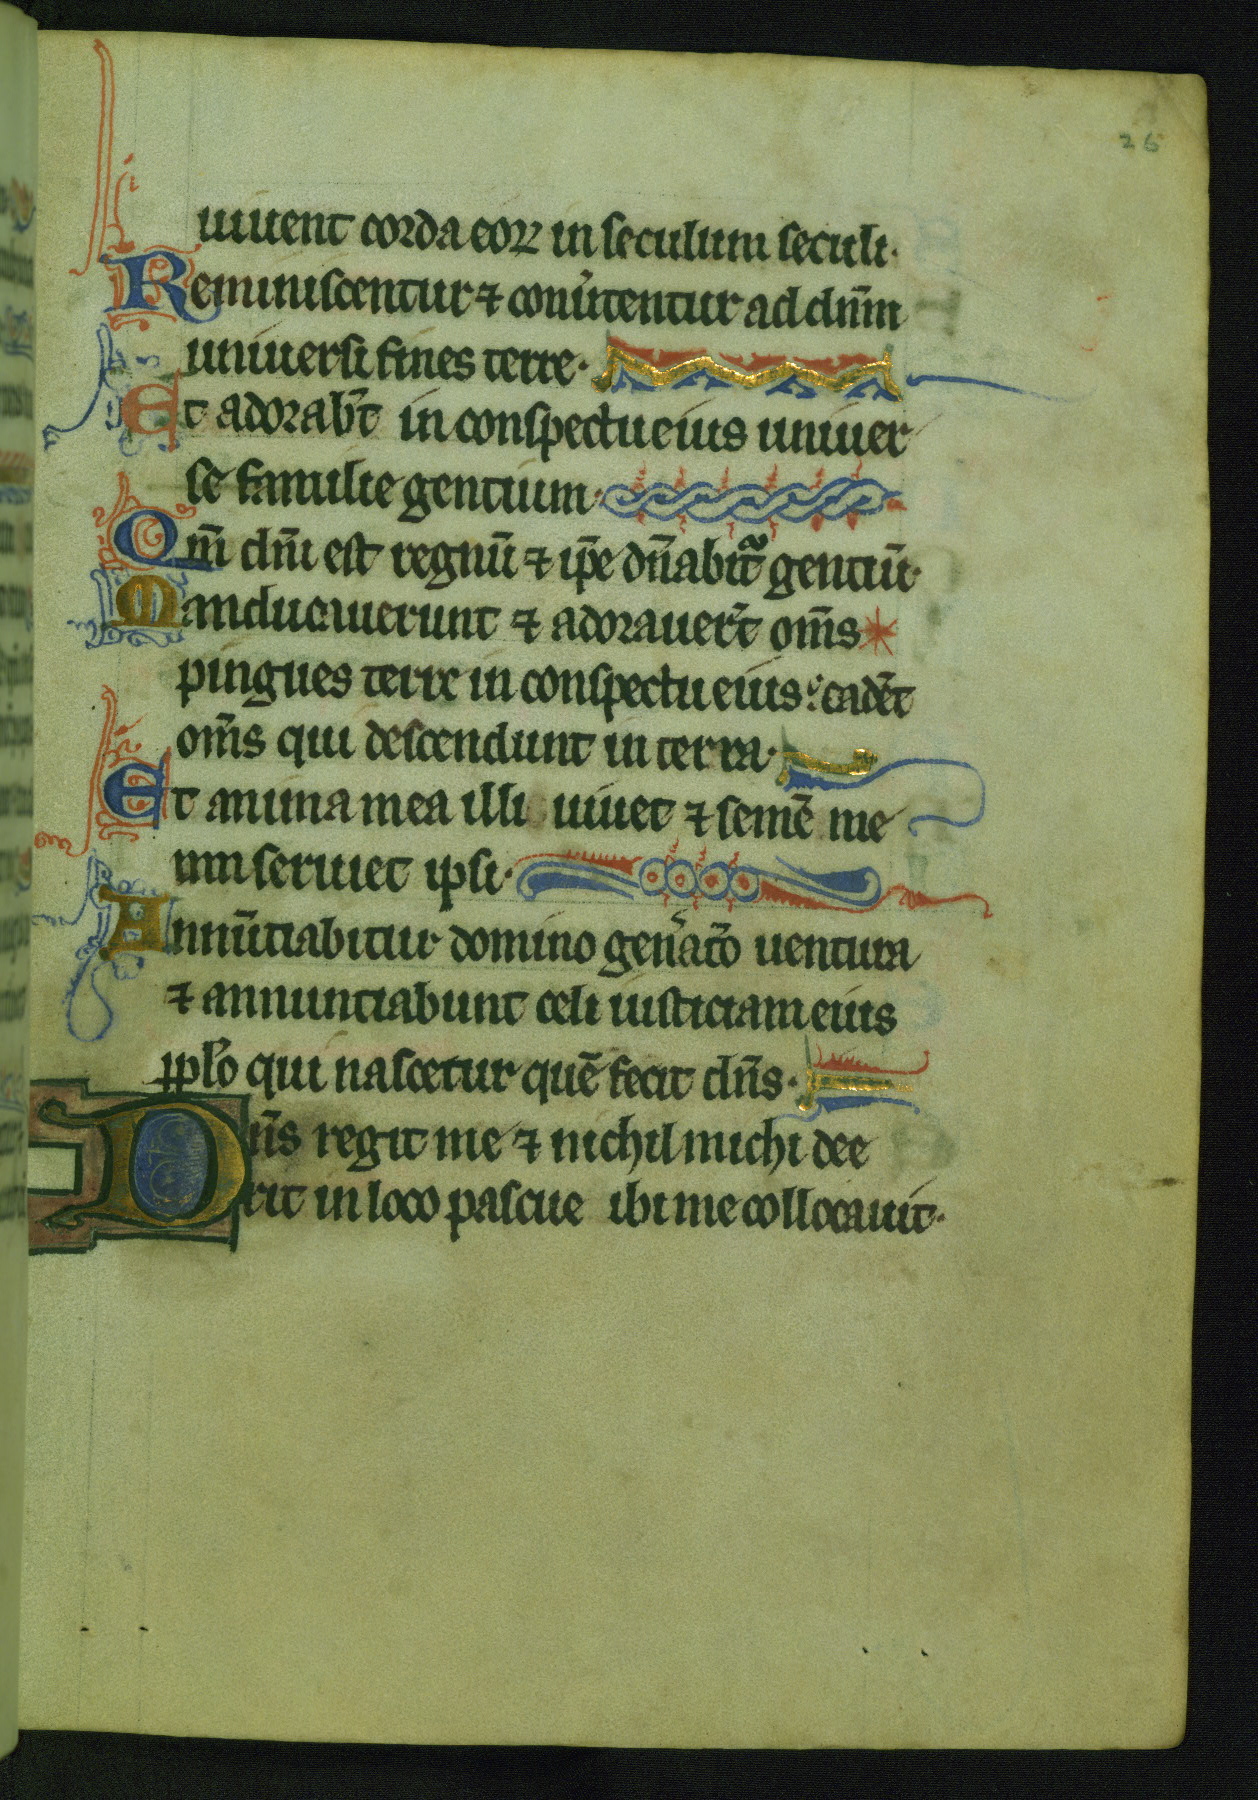 26
uiuent corda eoꝝ in seculum seculi.
Reminiscentur ⁊ conũtentur ad dn̄m
uniuersi fines terre.
Et adorab̃t in conspectu eius uniuer
se familie gentium.
Qm̄ dn̄i est regnū ⁊ ip̄e dn̄abit᷑ gentiū.
Manducauerunt ⁊ adorauer̃t om̄s
pingues terre in conspectu eius: cadēt
om̄s qui descendunt in terra.
Et anima mea illi uiuet ⁊ semē me
um seruiet ipsi.
Annūtiabitur domino gen̾atõ uentura
⁊ annuntiabunt celi iusticiam eius
pplõ qui nascetur quē fecit dn̄s.
Dn̄s regit me ⁊ nichil michi dee
rit in loco pascue ibi me collocauit.